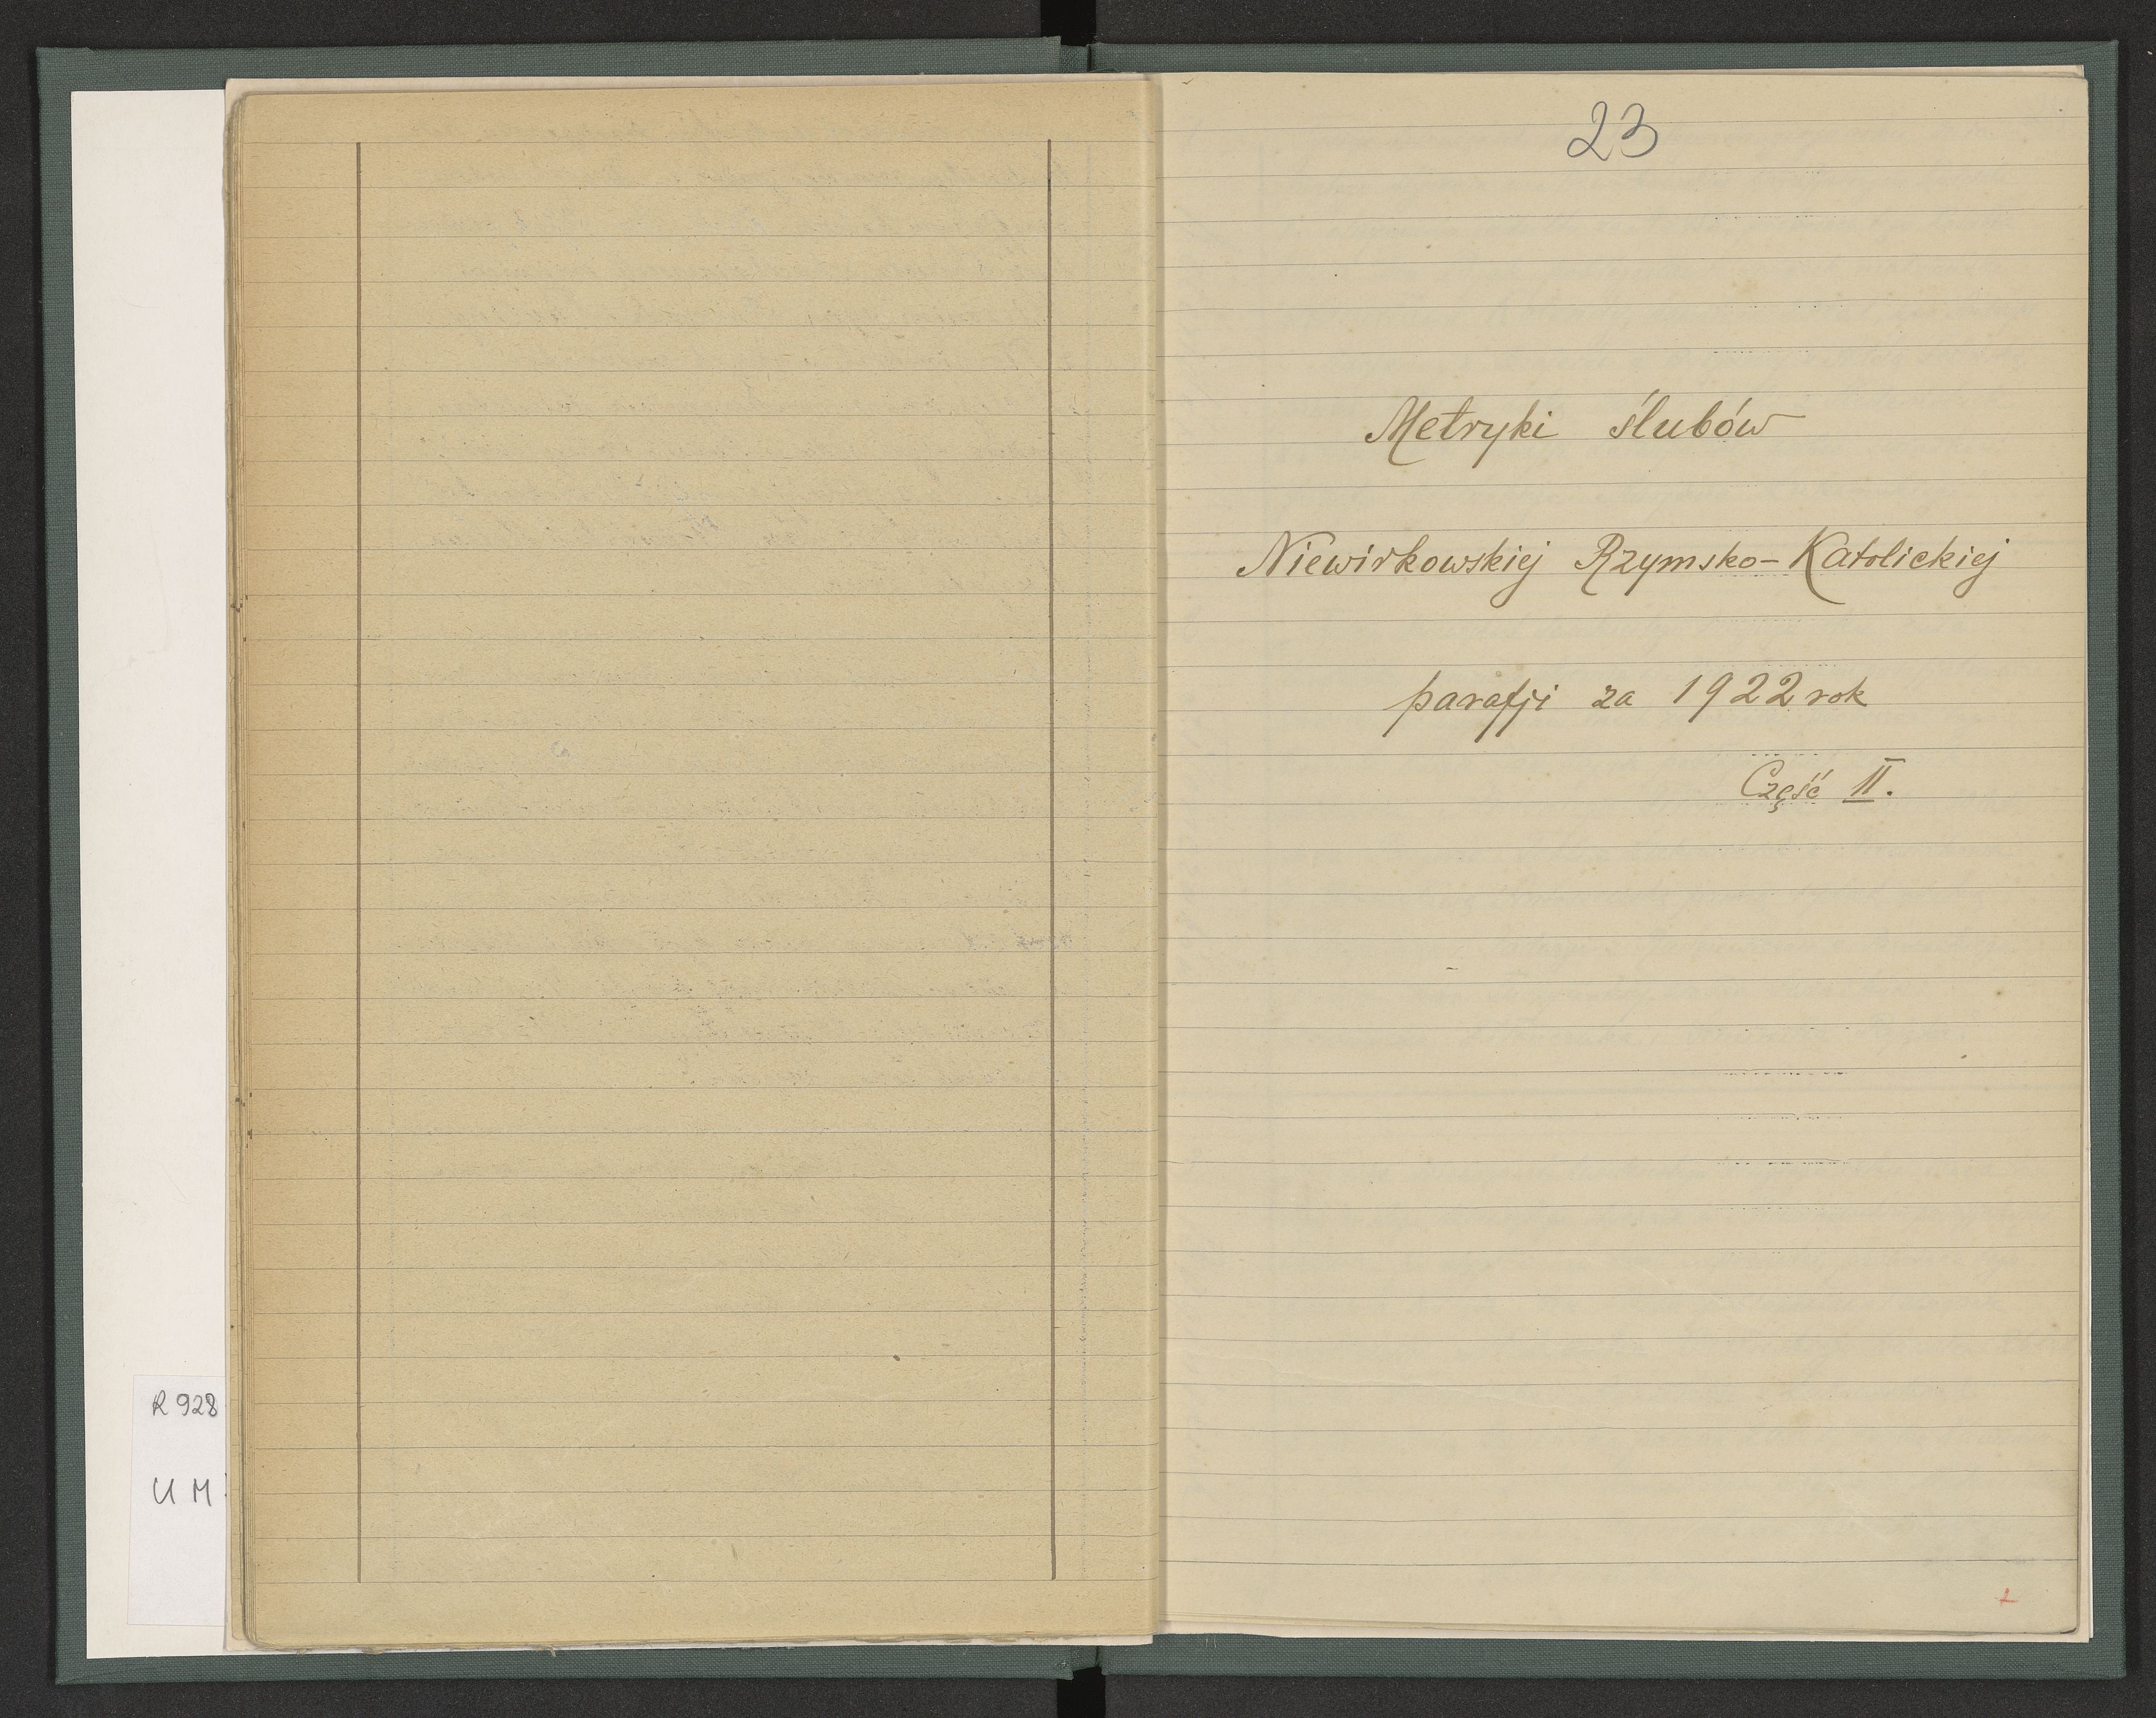 R 928
U M
23
Metryki ślubów
Niewirkowskiej Rzymsko-Katolickiej
parafji za 1922 rok
Część II.